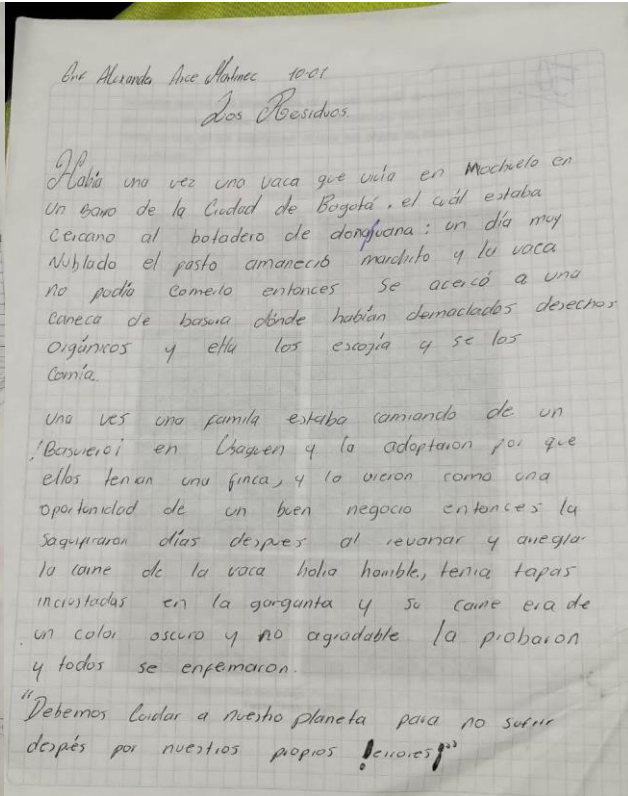 Alexanda Arce Martinec 10-01
Los Residuos.
Había una vez una vaca que vivía en Mochuelo en
un barrio de la Ciudad de Bogotá, el cuál estaba
cercano al botadero de donajuana: un día muy
Nublado el pasto amaneció marchito y la vaca
no podía comerlo entonces se acercó a una
caneca de basura dónde habían demaciados desechos
Orgánicos y ella los escojía y se los
Comía.
Una ves una familia estaba camiando de un
!Basurero¡ en Usaquen y la adoptaron por que
ellos tenian una finca, y la vieron como una
oportunidad de un buen negocio entonces la
días despues al revanar y arreglar
la carne de la vaca holia horrible, tenia tapas
incrustadas en la garganta y su carne era de
un color oscuro y no agradable la probaron
y todos se enfermaron.
"Debemos Cuidar a nuestro planeta para no sufrir
despés por nuestros propios !errores¡"